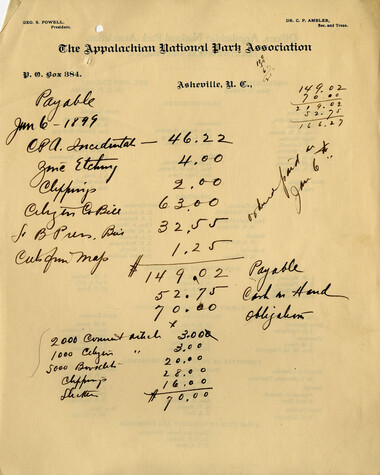 GEO. S. POWELL,
President.
DR. C. P. AMBLER,
Sec. and Treas.
The Appalachian National Park Association
P. O. Box 384.
Asheville, N. C.,
149.02
70 00
219.02
52.75
166.27
Payable
Jan 6 - 1899
CPA. Incidentals — 46.22
Zinc Etching 4.00
Clippings 2.00
Citizen Co Bill 63.00
B Press. 32.55
Map 1.25
$ 149.02 Payable
52.75 Cash on Hand
70.00 Obligation
x
paid
Jan 6"
2000 article 3.00
1000 Citizen " 3.00
5000 Booklets 20.00
Clippings 28.00
16.00
$ 70.00